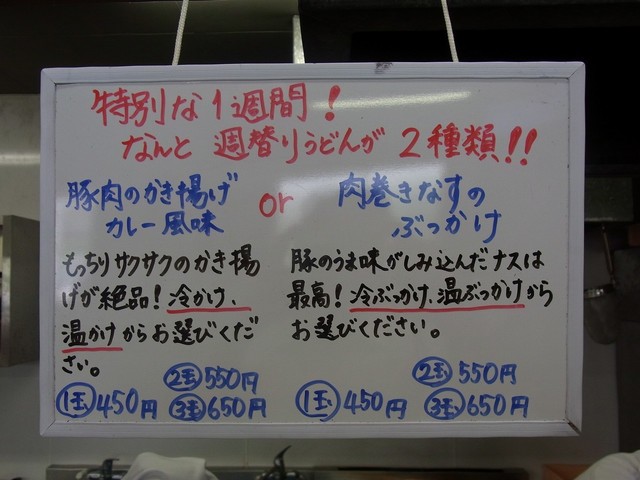 特別な1週間!
なんと 週替りうどんが 2種類!!
豚肉のかき揚げ
カレー風味
or
肉巻きなすの
ぶっかけ
もっちりサクサクのかき揚
げが絶品!冷かけ、
温かけからお選びくだ
さい。
豚のうま味がしみ込んだナスは
最高!冷ぶっかけ、温ぶっかけから
お選びください。
1玉 450円
2玉 550円
3玉 650円
1玉 450円
2玉 550円
3玉 650円